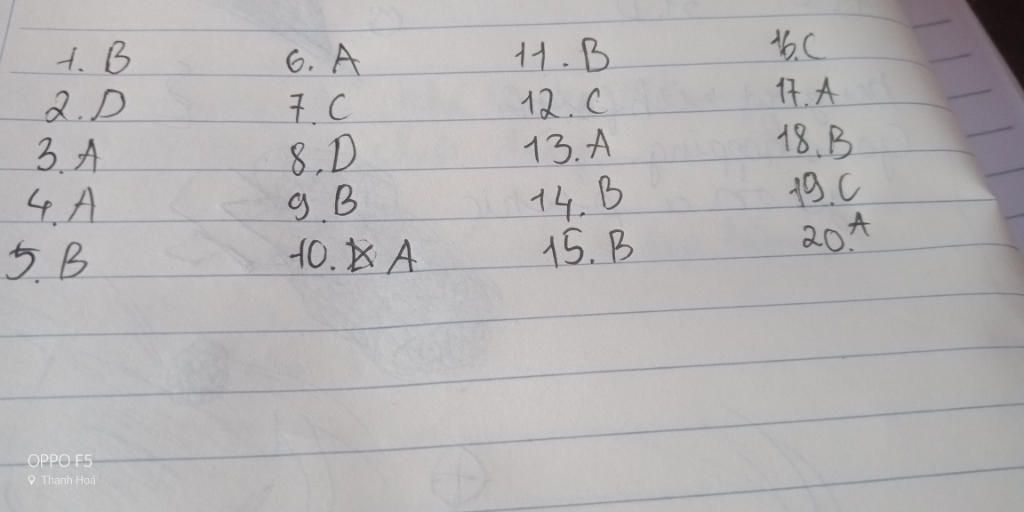 1. B 6. A 11. B 16. C
2. D 7. C 12. C 17. A
3. A 8. D 13. A 18. B
4. A 9. B 14. B 19. C
5. B 10. A 15. B 20. A
OPPO F5
Thanh Hoá